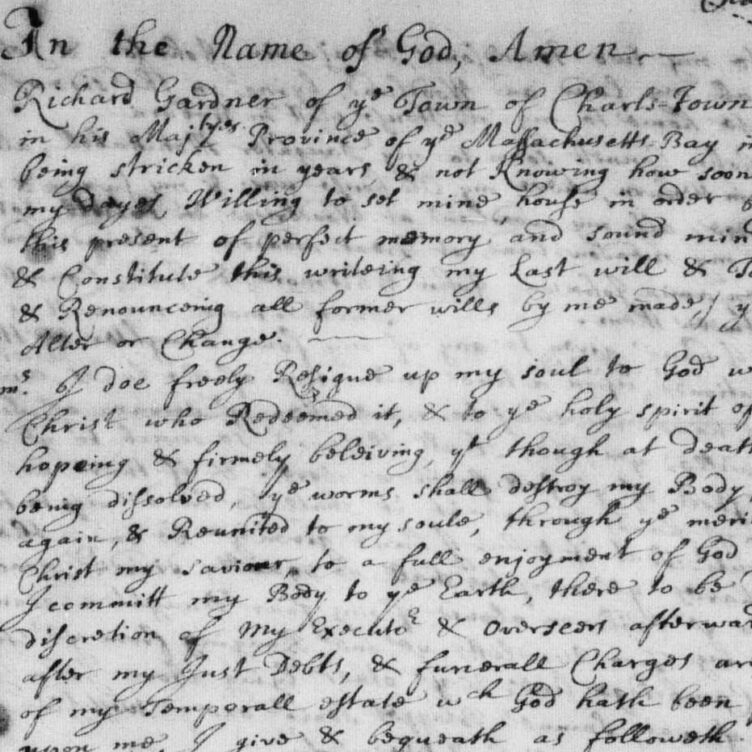 In the Name of God, Amen
Richard Gardner of ye Town of Charls-Town
in his Majtyes Province of ye Massachusetts Bay
being stricken in years, & not Knowing how soon
my dayes, Willing to set mine house in order
this present of perfect memory and sound min
& Constitute this writeing my Last will & T
& Renounceing all former wills by me made,
Alter or Change.
I doe freely Resigne up my soul to God
Christ who Redeemed it, & to ye holy spirit of
hopeing & firmely beleiving, yt though at death
being dissolved, ye worms shall destroy my Body
again, & Reunited to my soule, through ye meri
Christ my saviour, to a full enjoyment of God
I committ my Body to ye Earth, there to be
discretion of My Executor & Overseers afterwar
after my Just Debts, & funerall Charges ar
of my Temporall estate wch God hath been
upon me, I give & bequeath as followeth